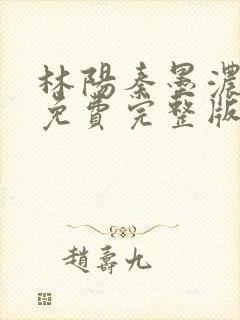 林陽秦墨濃
免費完整版
趙壽九